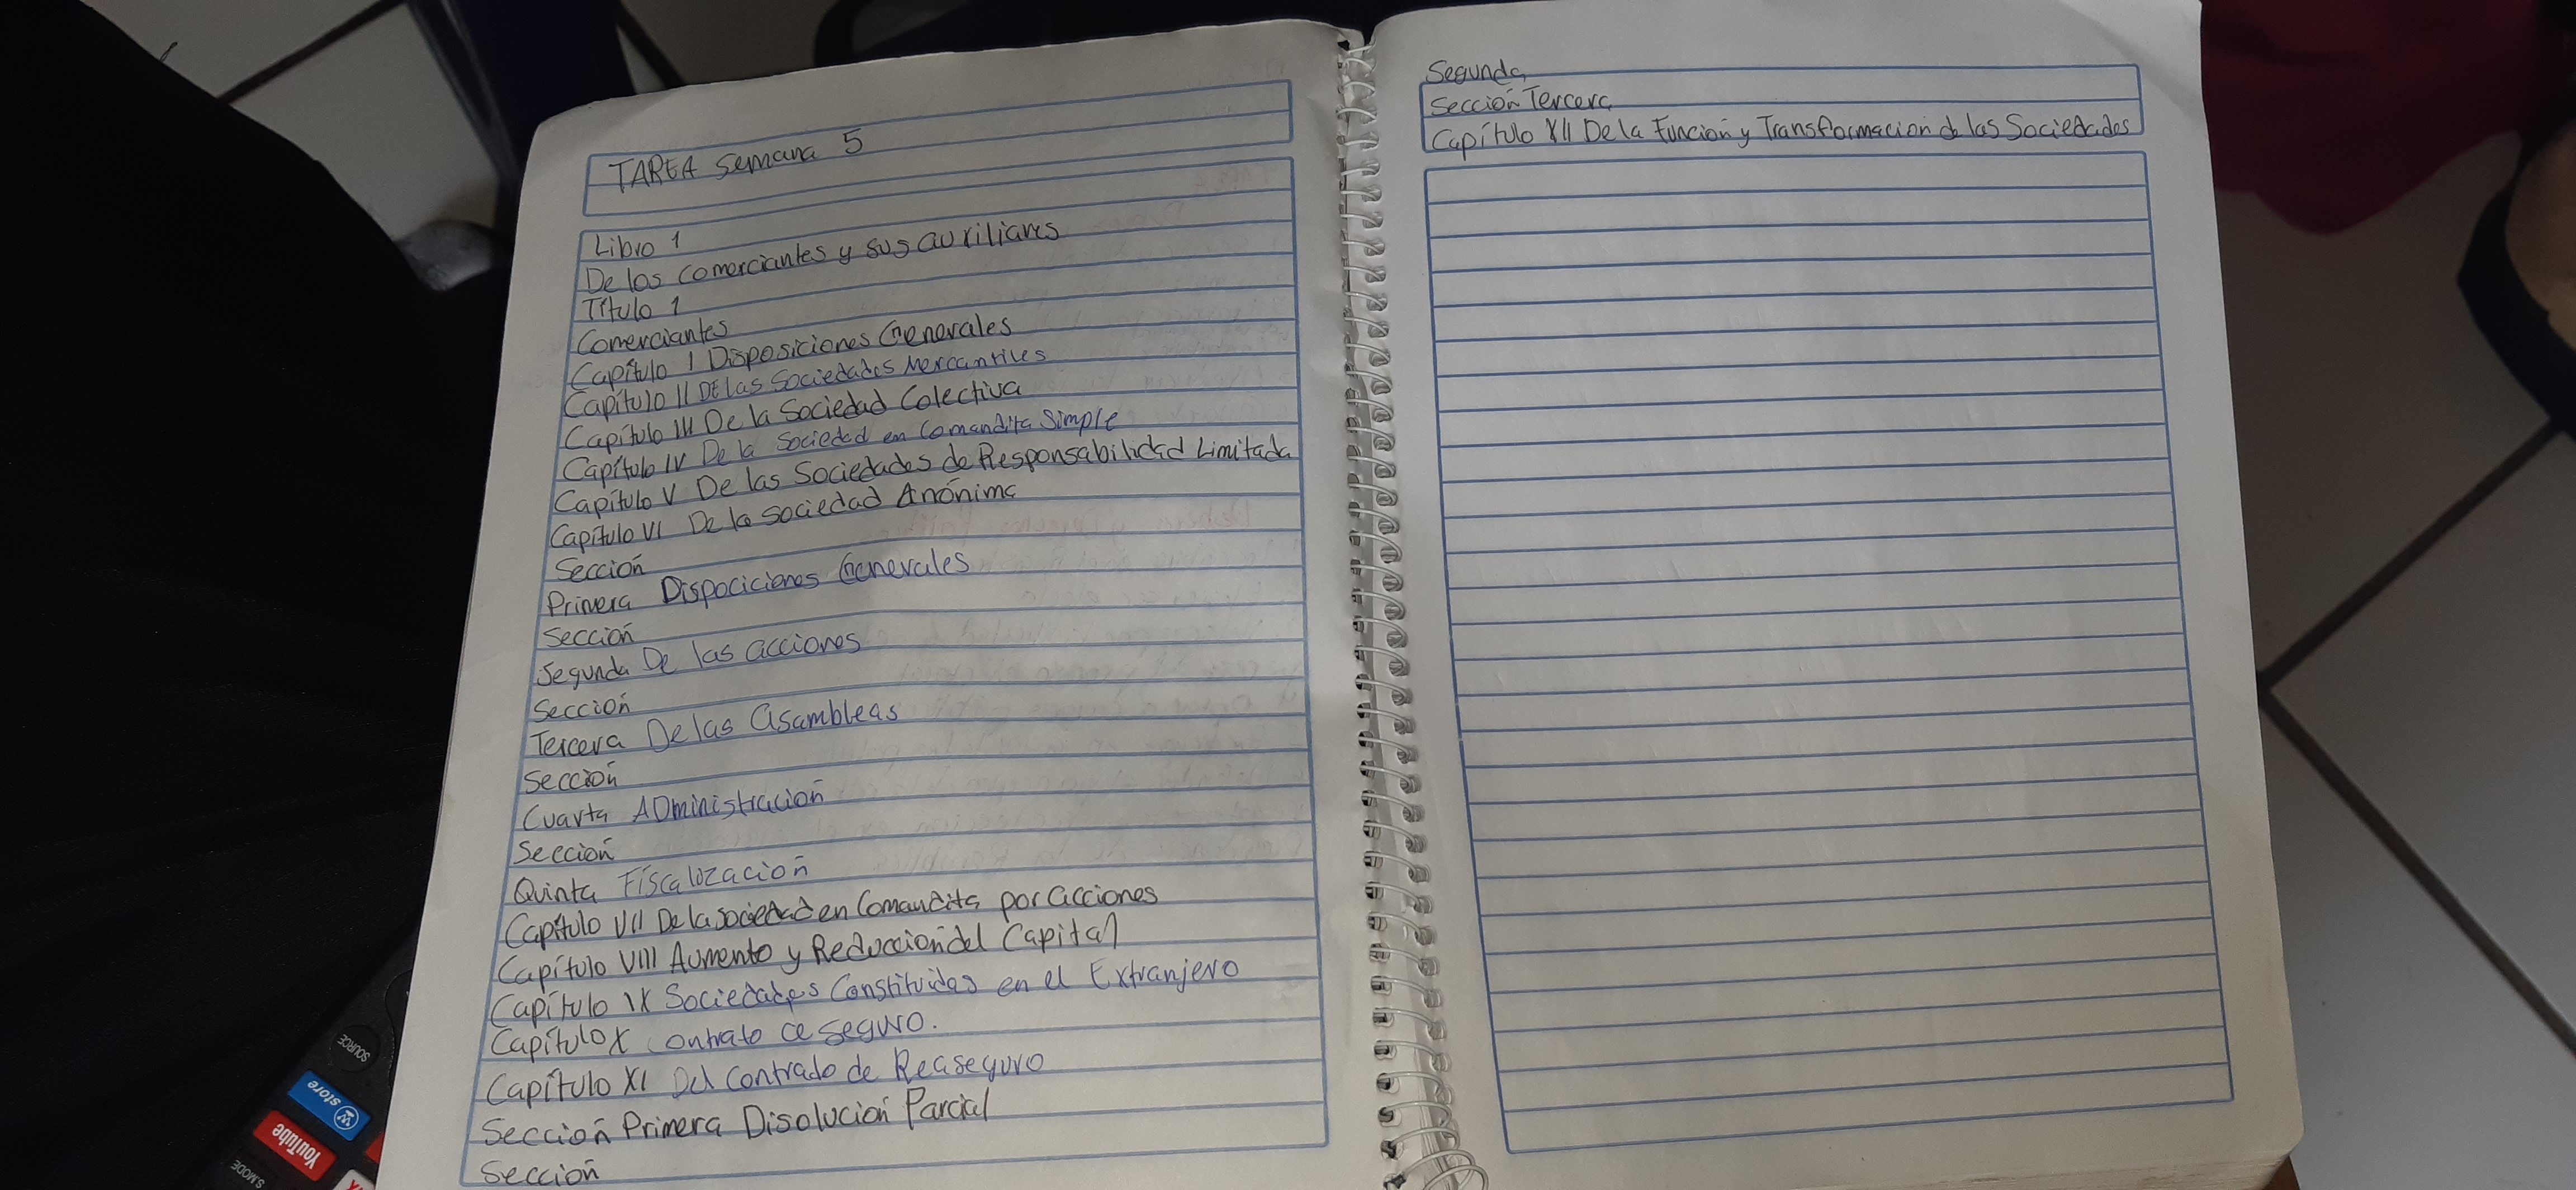 TAREA Semana 5
Libro 1
De los comerciantes y sus auxiliares
Título 1
Comerciantes
Capítulo I Disposiciones Generales
Capítulo II DE las Sociedades Mercantiles
Capítulo III De la Sociedad Colectiva
Capítulo IV De la Sociedad en Comandita Simple
Capítulo V De las Sociedades de Responsabilidad Limitada
Capítulo VI De la Sociedad Anónima
Sección
Primera Dispociciones Generales
Sección
Segunda De las acciones
Sección
Tercera De las asambleas
Sección
Cuarta ADministración
Sección
Quinta Fiscalozación
Capítulo VII De la sociedad en Comandita por acciones
Capítulo VIII Aumento y Reducción del Capital
Capítulo IX Sociedades Constituidas en el Extranjero
Capítulo X Contrato de seguro.
Capítulo XI Del Contrado de Reaseguro
Sección Primera Disolución Parcial
Sección
Segunda
Sección Tercera
Capítulo XII De la Función y Transformacion de las Sociedades
SOURCE
store
YouTube
S.MODE